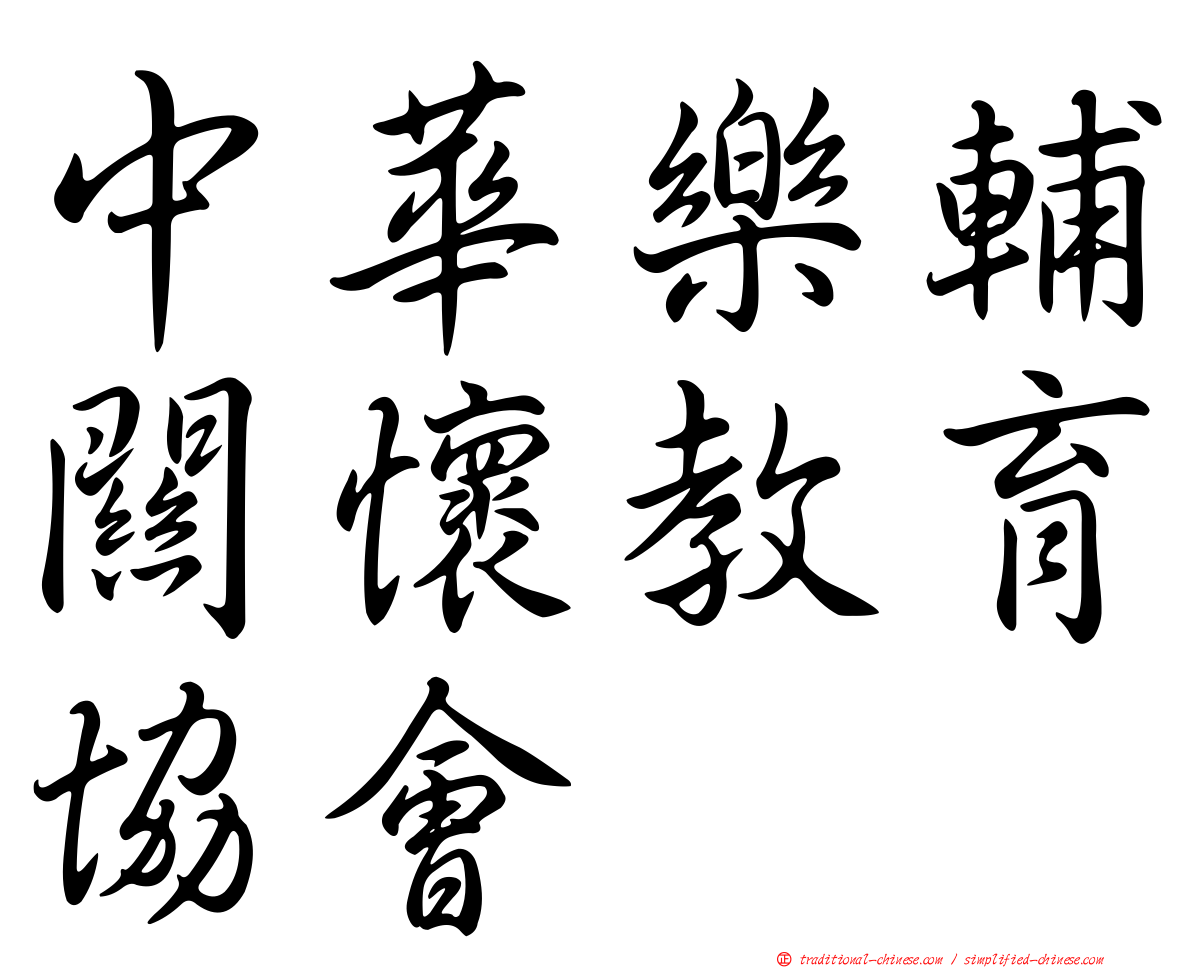 中華樂輔
關懷教育
協會
㊣ traditional-chinese.com / simplified-chinese.com